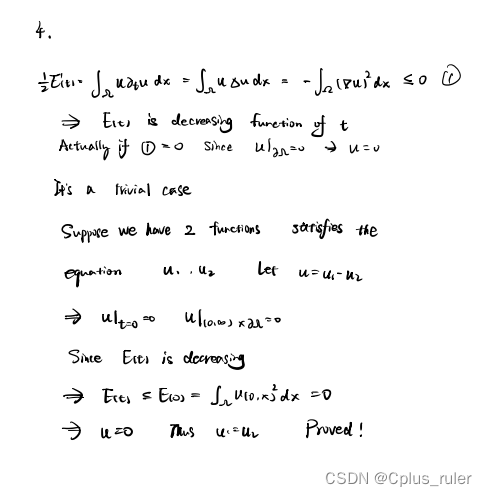 4.
½E'(t) = ∫_Ω u∂ₜu dx = ∫_Ω uΔu dx = -∫_Ω (∇u)² dx ≤ 0 ①
⇒ E(t) is decreasing function of t
Actually if ① = 0 since u|∂Ω=0 → u=0
It's a trivial case
Suppose we have 2 functions satisfies the
equation u₁, u₂ Let u=u₁-u₂
⇒ u|t=0 =0 u|(0,∞)×∂Ω=0
Since E(t) is decreasing
⇒ E(t) ≤ E(0) = ∫_Ω u(0,x)² dx = 0
⇒ u=0 Thus u₁=u₂ Proved!
CSDN @Cplus_ruler